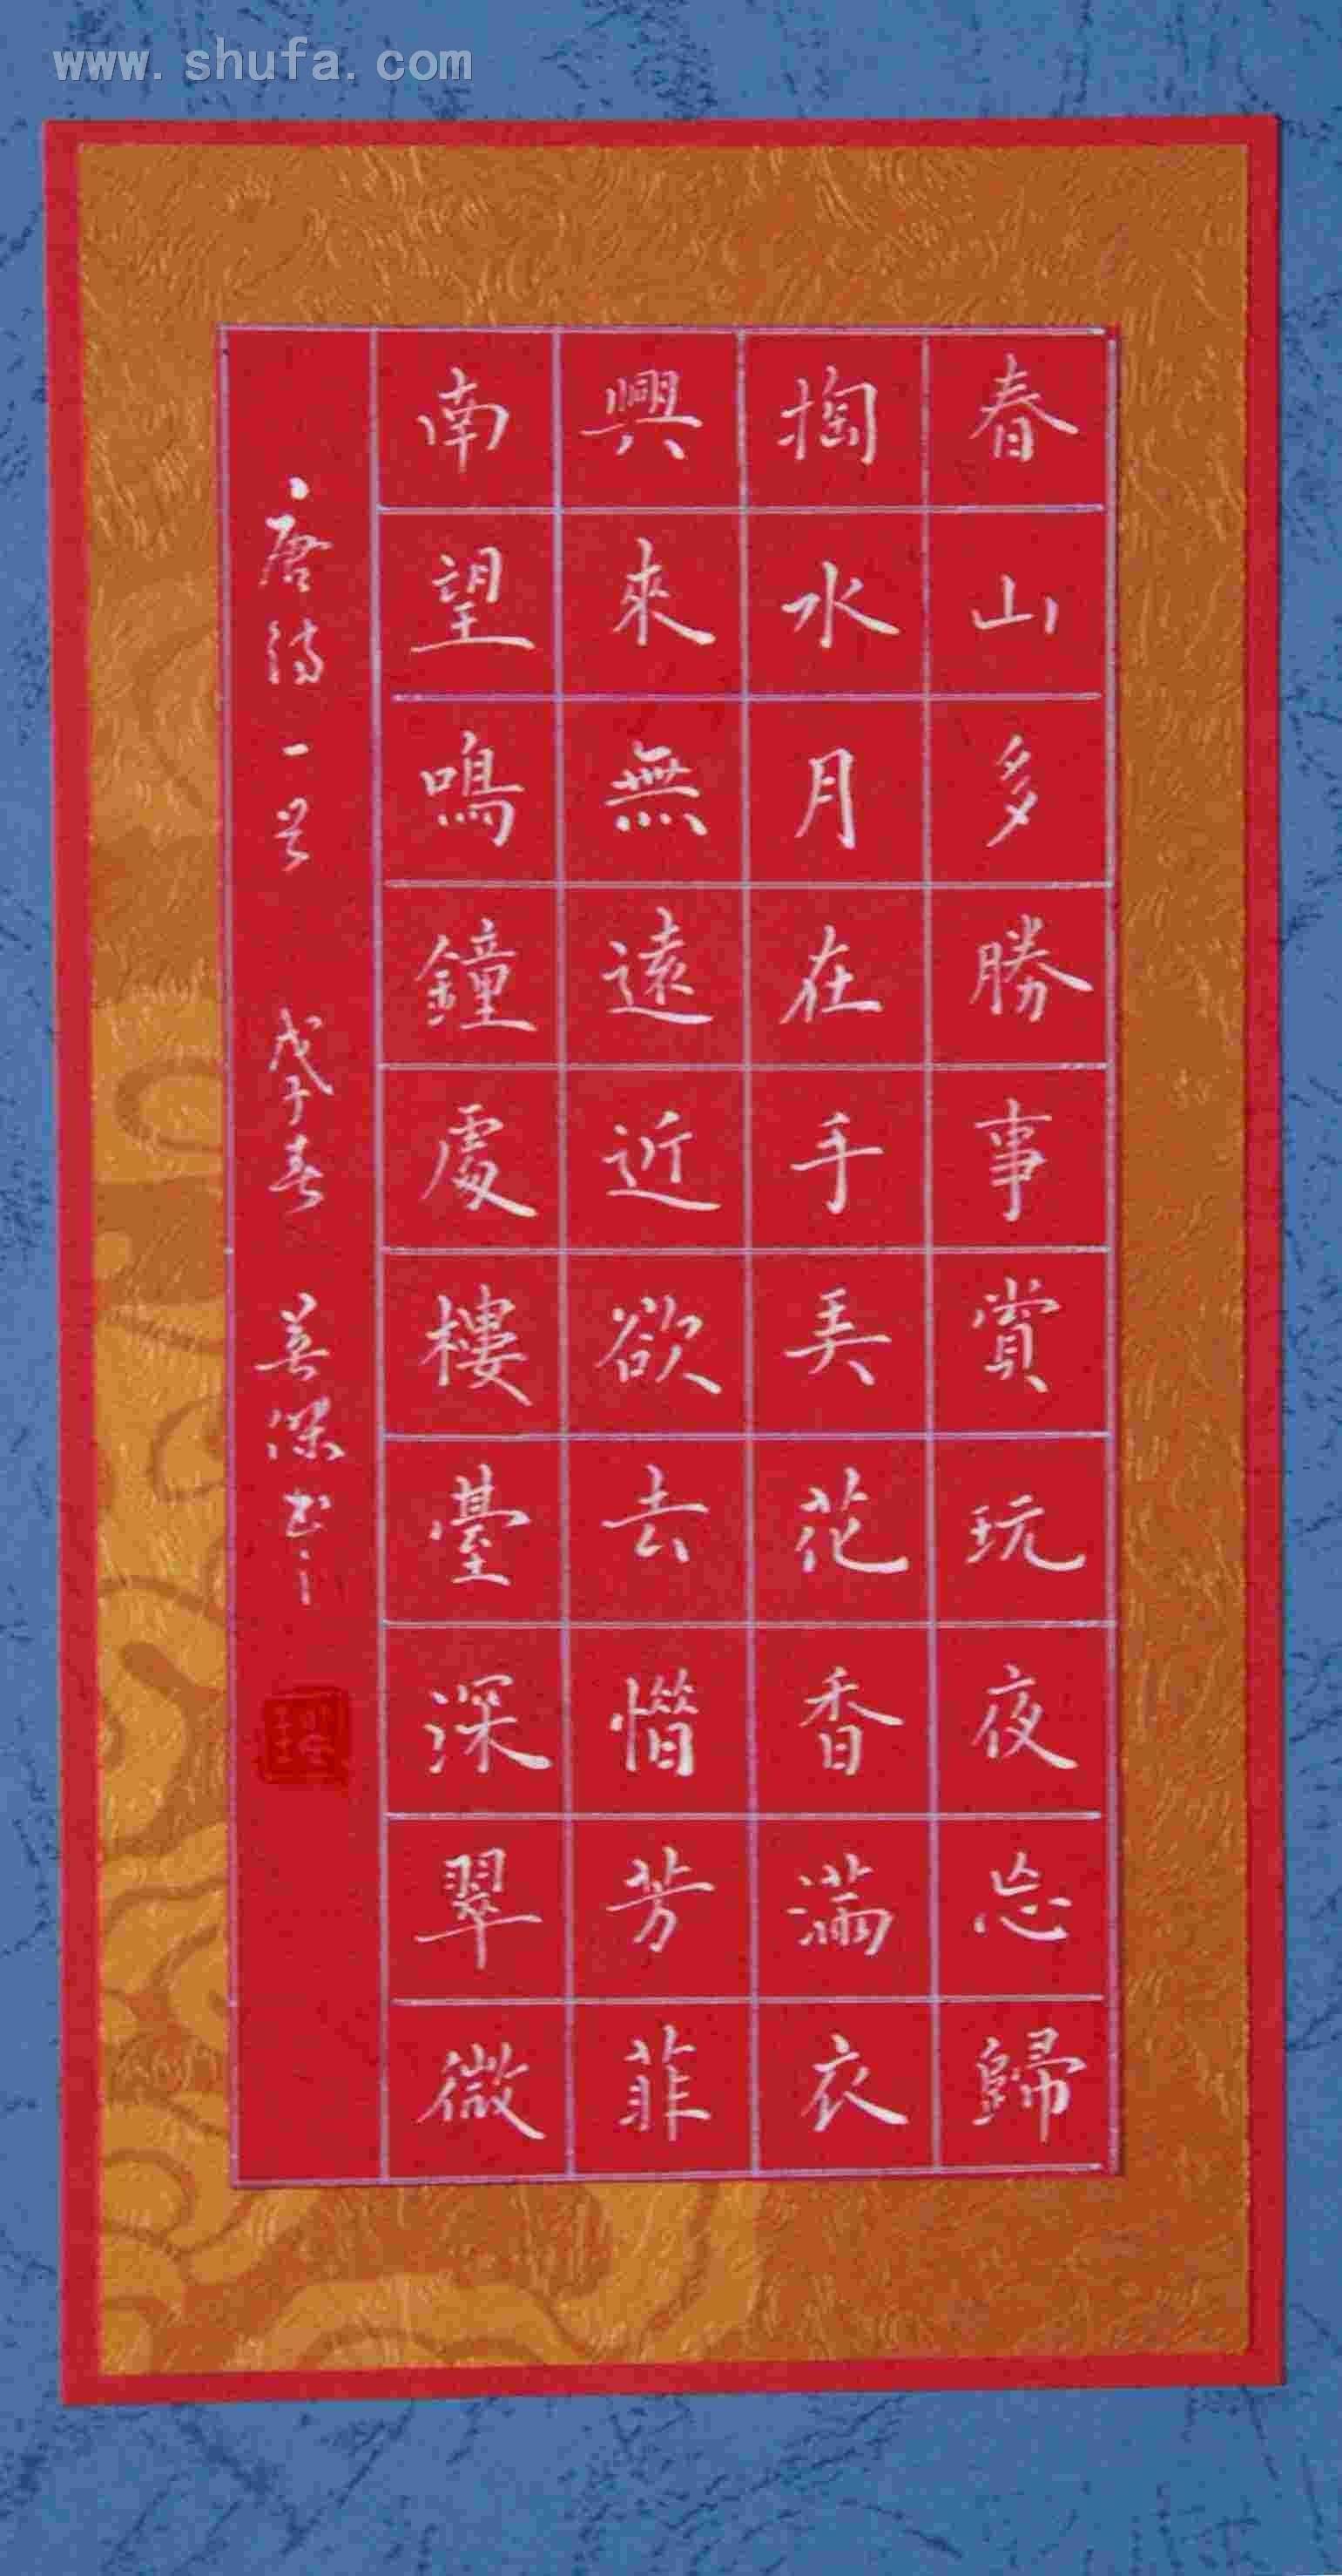 www.shufa.com
春山多勝事賞玩夜忘歸
掏水月在手弄花香滿衣
興來無遠近欲去惜芳菲
南望鳴鐘處樓臺深翠微
唐詩一首 戊子春 書之